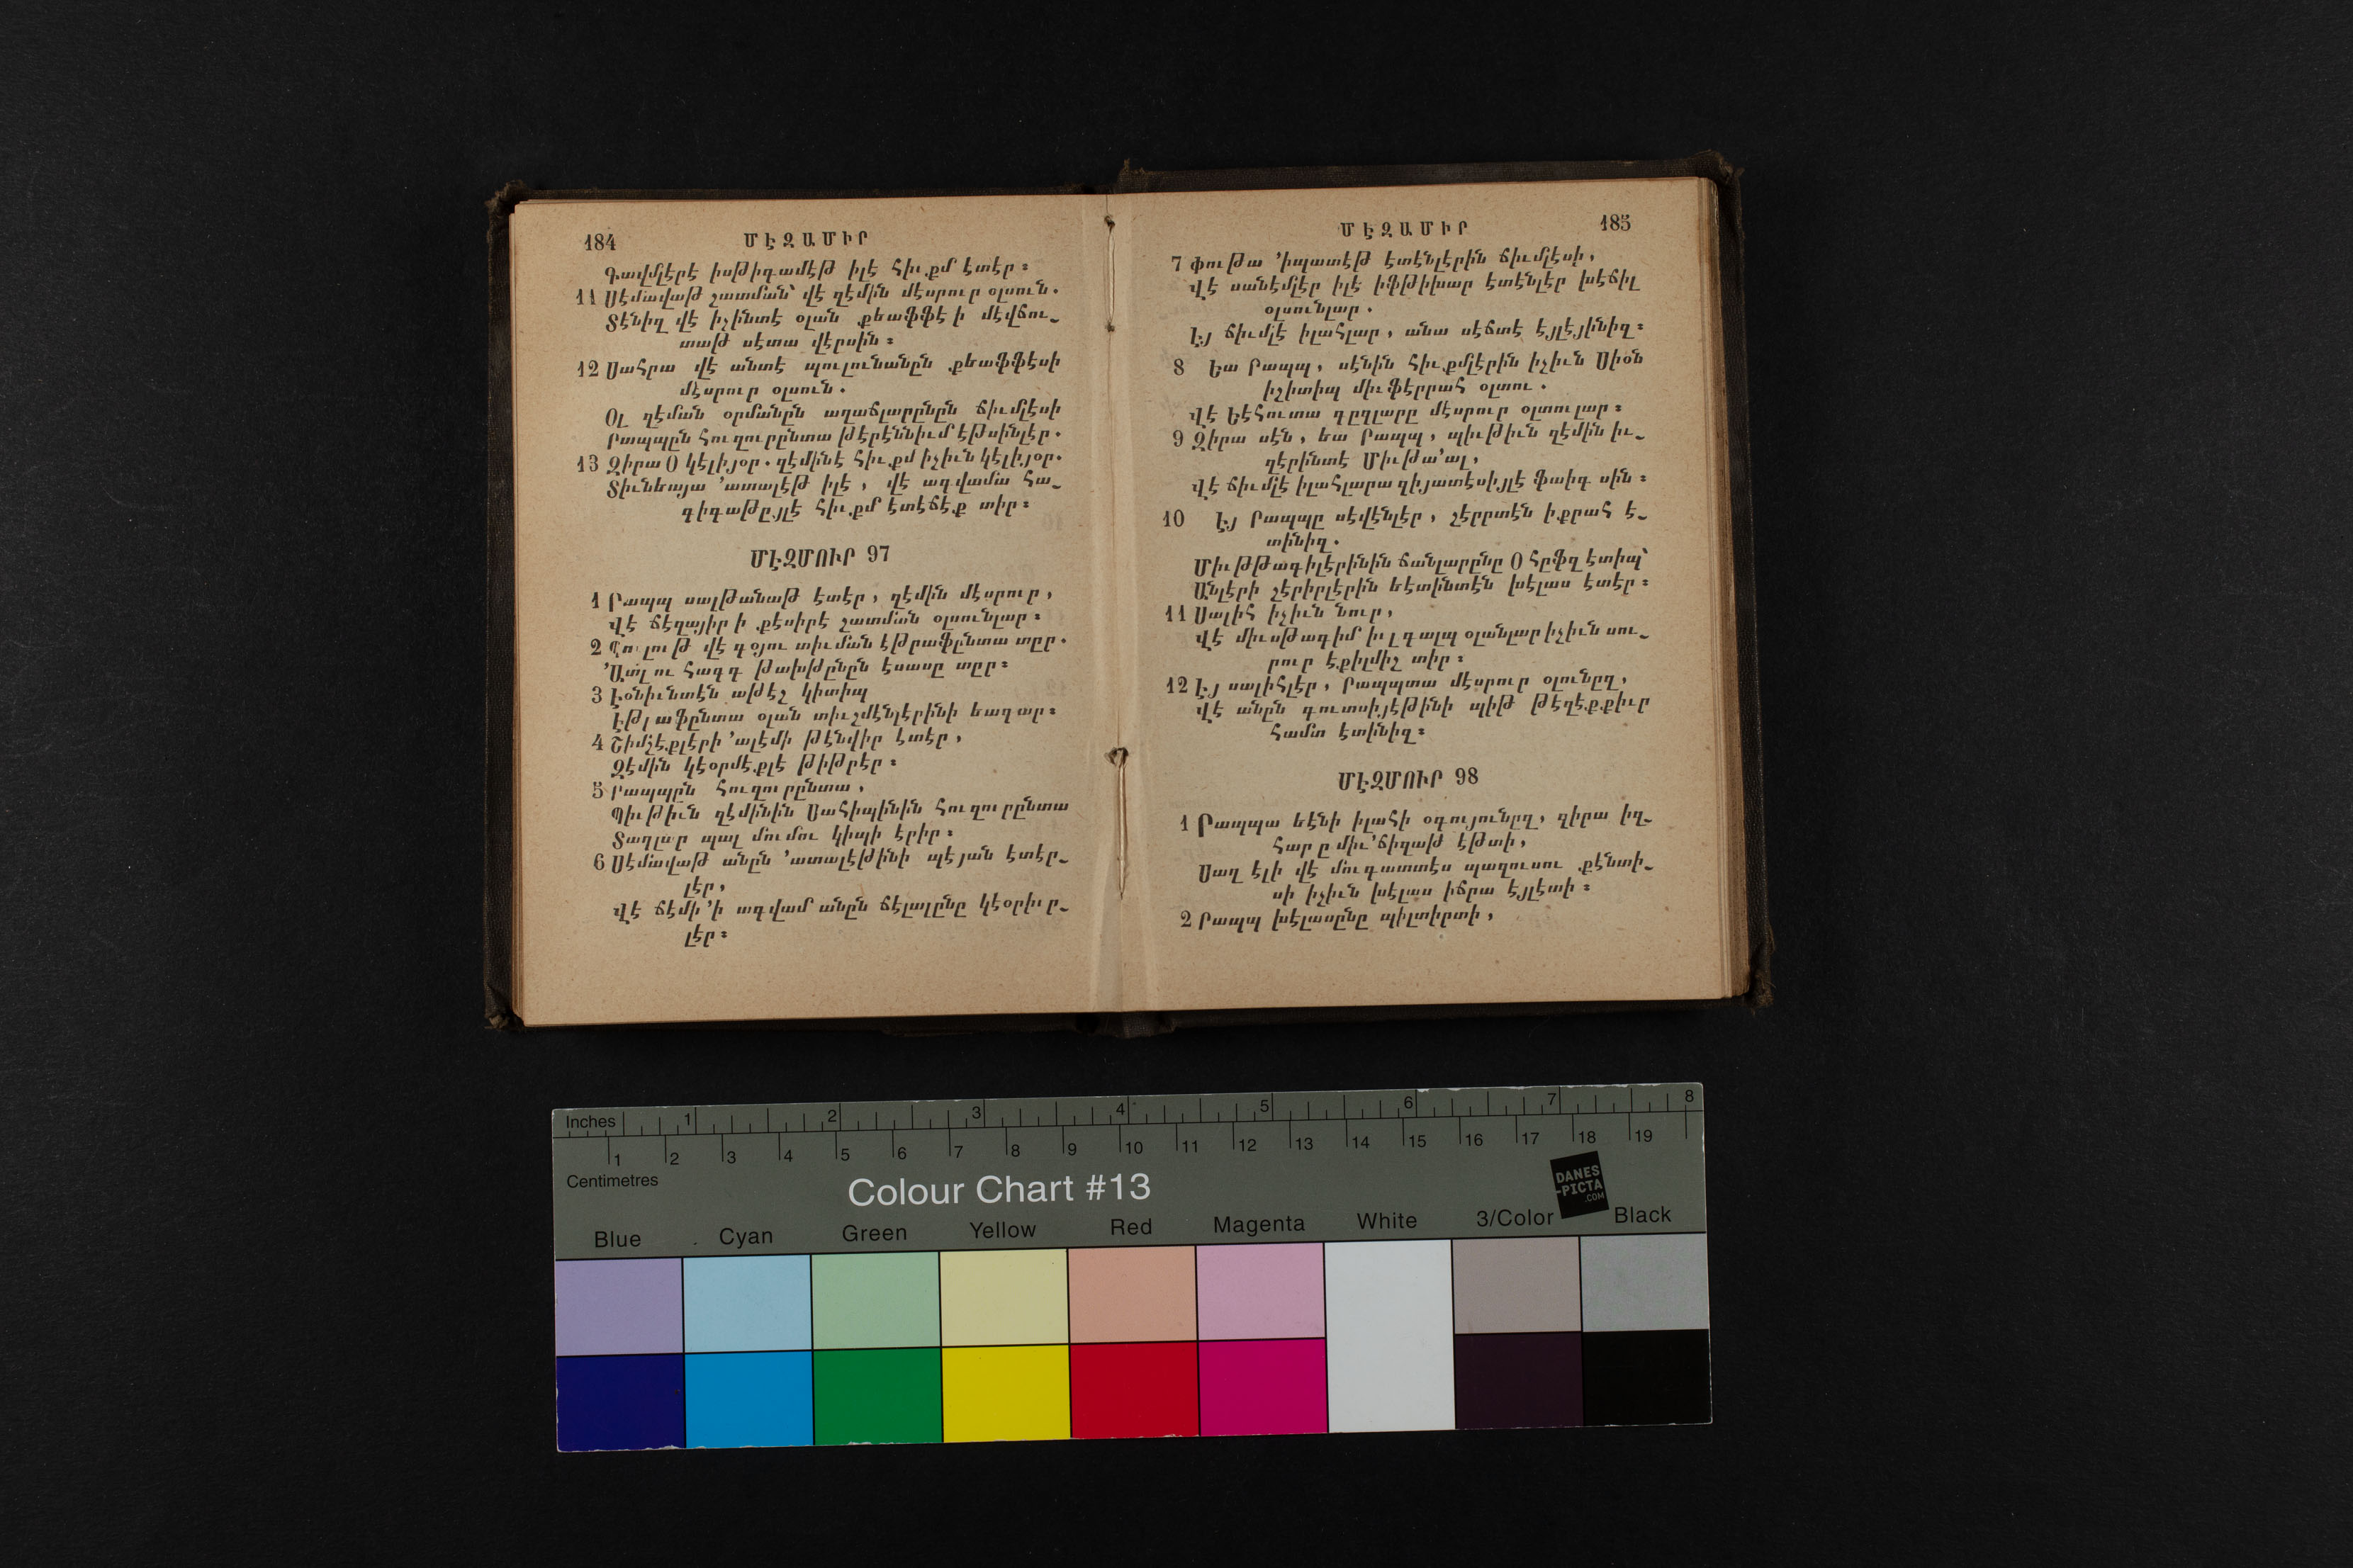 184 ՄԷԶԱՄԻՐ
Գավմլէրէ իսթիգամէթ իլէ հիւքմ էտէր ։
11 Սէմավաթ շատման՝ վէ զէմին մէսրուր օլսուն.
Տէնիզ վէ իչինտէ օլան քեաֆֆէ ի մէվճու֊
տաթ սէտա վէրսին ։
12 Սահրա վէ անտէ պուլունանըն քեաֆֆէսի
մէսրուր օլսուն.
Օլ զէման օրմանըն աղաճլարընըն ճիւմլէսի
Րապպըն հուզուրընտա թէրէննիւմ էթսինլէր.
13 Զիրա Օ կէլիյօր. զէմինէ հիւքմ իչիւն կէլիյօր.
Տիւնեայա ՚ատալէթ իլէ, վէ ագվամա հա֊
գիգաթըյլէ հիւքմ էտէճէք տիր ։
ՄԷԶՄՈՒՐ 97
1 Րապպ սալթանաթ էտէր, զէմին մէսրուր,
Վէ ճէզայիր ի քէսիրէ շատման օլսունլար ։
2 Պուլութ վէ գօյու տիւման էթրաֆընտա տըր.
՚Ատլ ու հագգ թախթընըն էսասը տըր ։
3 Էօնիւնտէն աթէշ կիտիպ
Էթրաֆընտա օլան տիւշմէնլէրինի եագար ։
4 Շիմշէքլէրի ՚ալէմի թէնվիր էտէր,
Զէմին կէօրմէքլէ թիթրէր ։
5 Րապպըն հուզուրընտա,
Պիւթիւն զէմինին Սահիպինին հուզուրընտա
Տաղլար պալ մումու կիպի էրիր ։
6 Սէմավաթ անըն ՚ատալէթինի պէյան էտէր֊
լէր,
Վէ ճէմի՚ի ագվամ անըն ճէլալընը կէօրիւր֊
լէր ։
ՄԷԶԱՄԻՐ 185
7 Փութա ՚իպատէթ էտէնլէրին ճիւմլէսի,
Վէ սանէմլէր իլէ իֆթիխար էտէնլէր խէճիլ
օլսունլար.
Էյ ճիւմլէ իլահլար, անա սէճտէ էյլէյինիզ ։
8 Եա Րապպ, սէնին հիւքմլէրին իչիւն Սիօն
իշիտիպ միւֆէրրահ օլտու.
Վէ Եէհուտա գըզլարը մէսրուր օլտուլար ։
9 Զիրա սէն, եա Րապպ, պիւթիւն զէմին իւ֊
զէրինտէ Միւթա՚ալ,
Վէ ճիւմլէ իլահլարա զիյատէսիյլէ ֆաիգ սին ։
10 Էյ Րապպը սէվէնլէր, շէրրտէն իքրահ է֊
տինիզ.
Միւթթագիլէրինին ճանլարընը Օ հըֆզ էտիպ՝
Անլէրի շէրիրլէրին եէտինտէն խէլաս էտէր ։
11 Սալիհ իչիւն նուր,
Վէ միւսթագիմ իւլ գալպ օլանլար իչիւն սու֊
րուր էքիլմիշ տիր ։
12 Էյ սալիհլէր, Րապպտա մէսրուր օլունըզ,
Վէ անըն գուտսիյէթինի պիթ թէզէքքիւր
համտ էտինիզ ։
ՄԷԶՄՈՒՐ 98
1 Րապպա եէնի իլահի օգույունըզ, զիրա իզ֊
հար ը միւ՚ճիզաթ էթտի,
Սաղ էլի վէ մուգատտէս պազուսու քէնտի֊
սի իչիւն խէլաս իճրա էյլէտի ։
2 Րապպ խէլասընը պիլտիրտի,
Inches 1 2 3 4 5 6 7 8
1 2 3 4 5 6 7 8 9 10 11 12 13 14 15 16 17 18 19
Centimetres
Colour Chart #13
DANES
-PICTA
.COM
Blue Cyan Green Yellow Red Magenta White 3/Color Black